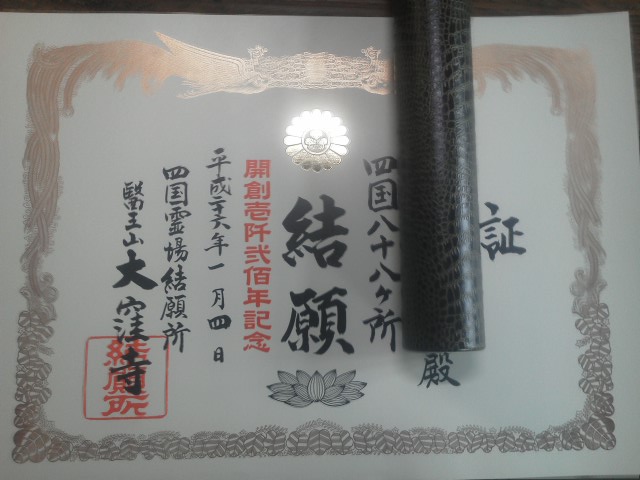 証
殿
四国八十八ヶ所
結願
開創壱阡弐佰年記念
平成二十六年一月四日
四国霊場結願所
醫王山大窪寺
結願所